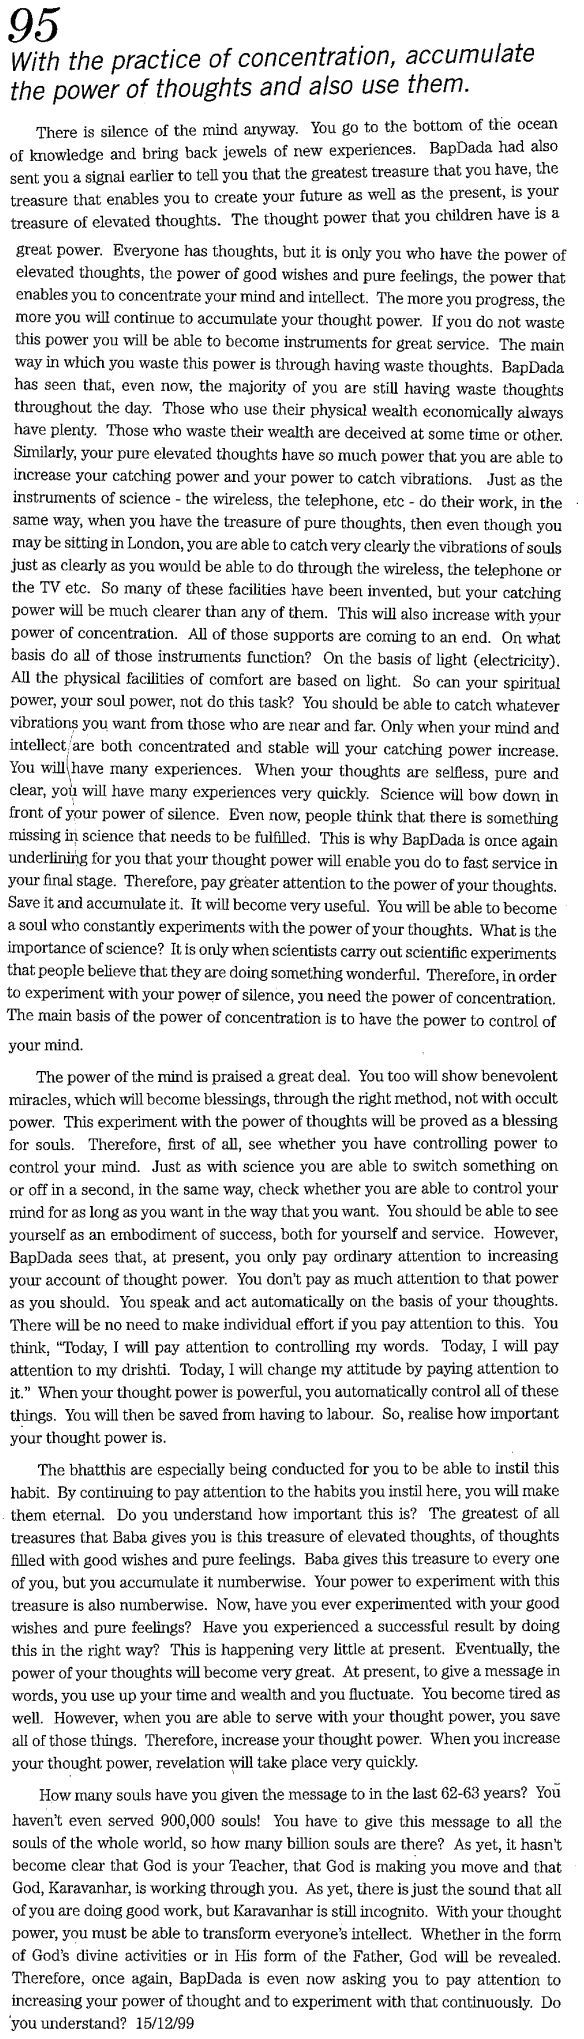 95
With the practice of concentration, accumulate
the power of thoughts and also use them.
There is silence of the mind anyway. You go to the bottom of the ocean
of knowledge and bring back jewels of new experiences. BapDada had also
sent you a signal earlier to tell you that the greatest treasure that you have, the
treasure that enables you to create your future as well as the present, is your
treasure of elevated thoughts. The thought power that you children have is a
great power. Everyone has thoughts, but it is only you who have the power of
elevated thoughts, the power of good wishes and pure feelings, the power that
enables you to concentrate your mind and intellect. The more you progress, the
more you will continue to accumulate your thought power. If you do not waste
this power you will be able to become instruments for great service. The main
way in which you waste this power is through having waste thoughts. BapDada
has seen that, even now, the majority of you are still having waste thoughts
throughout the day. Those who use their physical wealth economically always
have plenty. Those who waste their wealth are deceived at some time or other.
Similarly, your pure elevated thoughts have so much power that you are able to
increase your catching power and your power to catch vibrations. Just as the
instruments of science - the wireless, the telephone, etc - do their work, in the
same way, when you have the treasure of pure thoughts, then even though you
may be sitting in London, you are able to catch very clearly the vibrations of souls
just as clearly as you would be able to do through the wireless, the telephone or
the TV etc. So many of these facilities have been invented, but your catching
power will be much clearer than any of them. This will also increase with your
power of concentration. All of those supports are coming to an end. On what
basis do all of those instruments function? On the basis of light (electricity).
All the physical facilities of comfort are based on light. So can your spiritual
power, your soul power, not do this task? You should be able to catch whatever
vibrations you want from those who are near and far. Only when your mind and
intellect are both concentrated and stable will your catching power increase.
You will have many experiences. When your thoughts are selfless, pure and
clear, you will have many experiences very quickly. Science will bow down in
front of your power of silence. Even now, people think that there is something
missing in science that needs to be fulfilled. This is why BapDada is once again
underlining for you that your thought power will enable you do to fast service in
your final stage. Therefore, pay greater attention to the power of your thoughts.
Save it and accumulate it. It will become very useful. You will be able to become
a soul who constantly experiments with the power of your thoughts. What is the
importance of science? It is only when scientists carry out scientific experiments
that people believe that they are doing something wonderful. Therefore, in order
to experiment with your power of silence, you need the power of concentration.
The main basis of the power of concentration is to have the power to control of
your mind.
The power of the mind is praised a great deal. You too will show benevolent
miracles, which will become blessings, through the right method, not with occult
power. This experiment with the power of thoughts will be proved as a blessing
for souls. Therefore, first of all, see whether you have controlling power to
control your mind. Just as with science you are able to switch something on
or off in a second, in the same way, check whether you are able to control your
mind for as long as you want in the way that you want. You should be able to see
yourself as an embodiment of success, both for yourself and service. However,
BapDada sees that, at present, you only pay ordinary attention to increasing
your account of thought power. You don't pay as much attention to that power
as you should. You speak and act automatically on the basis of your thoughts.
There will be no need to make individual effort if you pay attention to this. You
think, "Today, I will pay attention to controlling my words. Today, I will pay
attention to my drishti. Today, I will change my attitude by paying attention to
it." When your thought power is powerful, you automatically control all of these
things. You will then be saved from having to labour. So, realise how important
your thought power is.
The bhatthis are especially being conducted for you to be able to instil this
habit. By continuing to pay attention to the habits you instil here, you will make
them eternal. Do you understand how important this is? The greatest of all
treasures that Baba gives you is this treasure of elevated thoughts, of thoughts
filled with good wishes and pure feelings. Baba gives this treasure to every one
of you, but you accumulate it numberwise. Your power to experiment with this
treasure is also numberwise. Now, have you ever experimented with your good
wishes and pure feelings? Have you experienced a successful result by doing
this in the right way? This is happening very little at present. Eventually, the
power of your thoughts will become very great. At present, to give a message in
words, you use up your time and wealth and you fluctuate. You become tired as
well. However, when you are able to serve with your thought power, you save
all of those things. Therefore, increase your thought power. When you increase
your thought power, revelation will take place very quickly.
How many souls have you given the message to in the last 62-63 years? You
haven't even served 900,000 souls! You have to give this message to all the
souls of the whole world, so how many billion souls are there? As yet, it hasn't
become clear that God is your Teacher, that God is making you move and that
God, Karavanhar, is working through you. As yet, there is just the sound that all
of you are doing good work, but Karavanhar is still incognito. With your thought
power, you must be able to transform everyone's intellect. Whether in the form
of God's divine activities or in His form of the Father, God will be revealed.
Therefore, once again, BapDada is even now asking you to pay attention to
increasing your power of thought and to experiment with that continuously. Do
you understand? 15/12/99